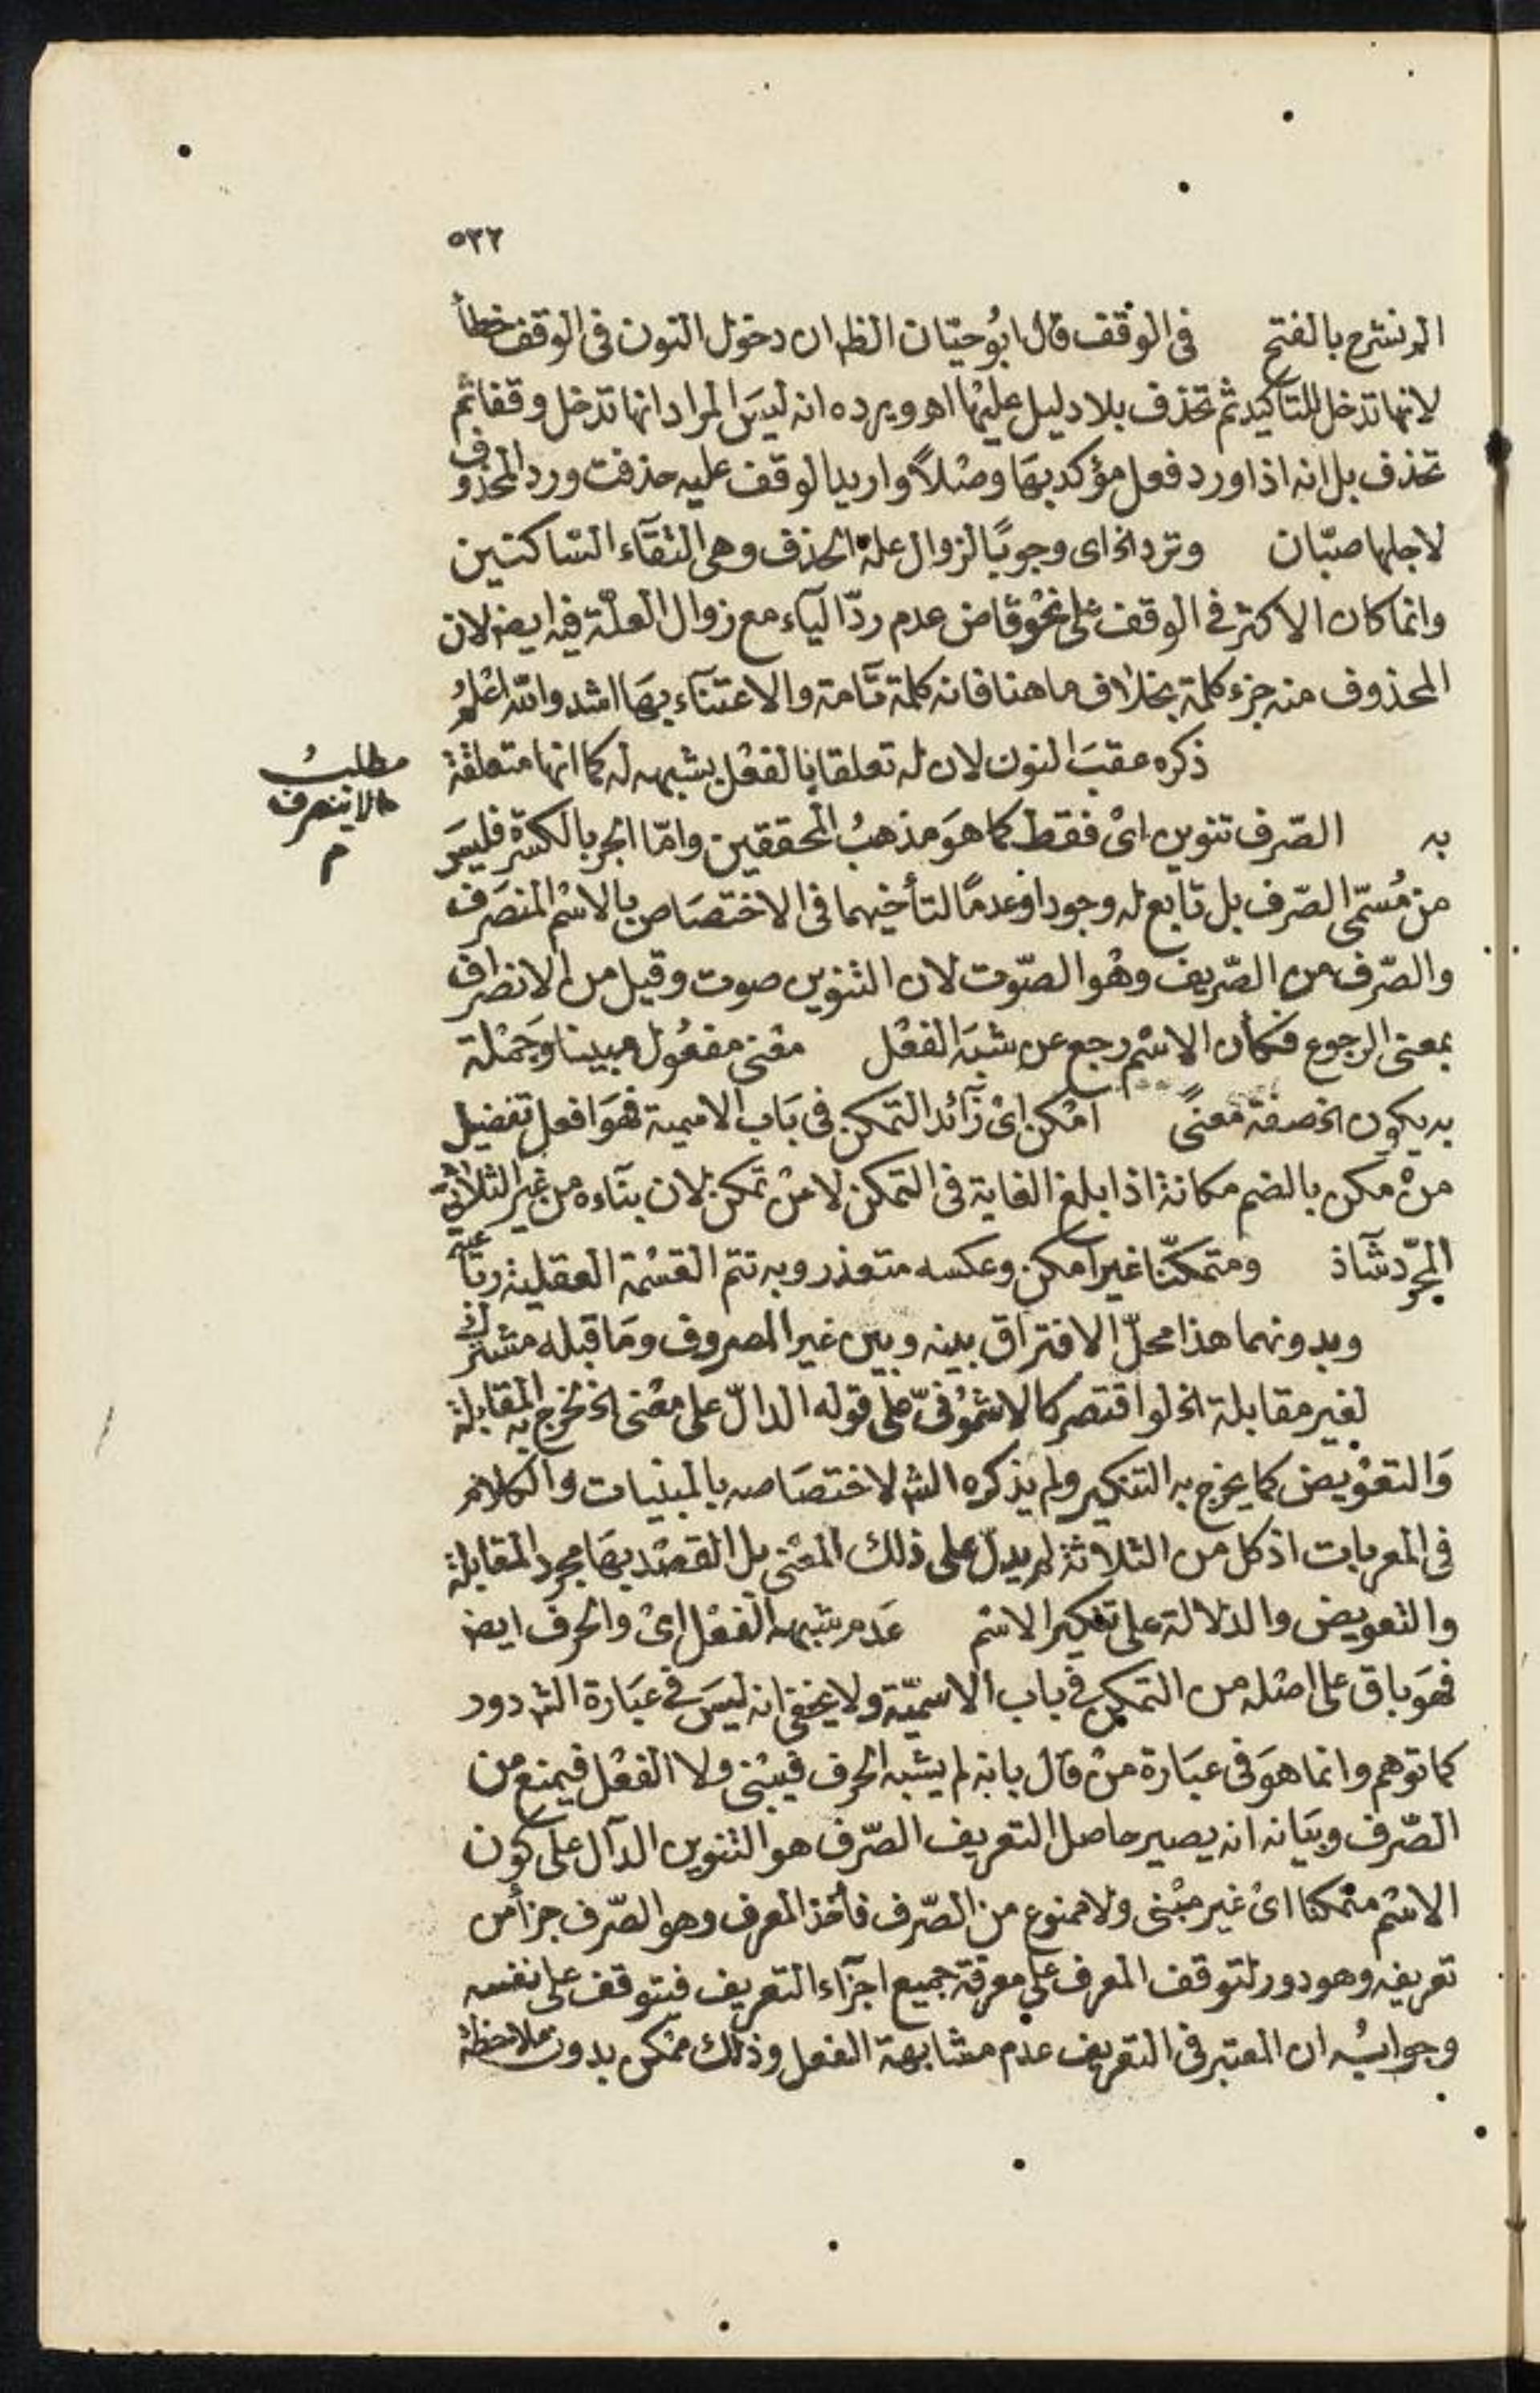 ٥٣٢
الم نشرح بالفتح في الوقف قال ابو حيان الظ ان دخول النون في الوقف خطأ
لانها تدخل للتأكيد ثم تحذف بلا دليل عليها اهو ويرده انه ليس المراد انها تدخل وقفا ثم
تحذف بل انه اذا ورد فعل مؤكد بها وصلاً واريد الوقف عليه حذفت ورد المحذوف
لاجلها صبّان وترد الخ اى وجوبًا لزوال علة الحذف وهى التقآء الساكنين
وانما كان الاكثر في الوقف على نحو قاض عدم ردّ الياء مع زوال العلة فيه ايضا لان
المحذوف منه جزء كلمة بخلاف ما هنا فانه كلمة تآمة والاعتنآء بها اشد والله اعلم
ذكره عقب النون لان له تعلقا بالفعل بشبهه له كما انها متعلقة
مطلب
مالاينصرف
م
به الصّرف تنوين اى فقط كما هو مذهب المحققين وامّا الجر بالكسرة فليس
من مُسمّى الصّرف بل تابع له وجودا وعدمًا لتأخيهما في الاختصاص بالاسم المنصرف
والصّرف من الصّريف وهو الصّوت لان التنوين صوت وقيل من الانصراف
بمعنى الرجوع فكأن الاسم رجع عن شبه الفعل معنى مفعول مبينا وجملة
به يكون الخ صفة معنىً امكن اى زآئد التمكن في باب الاسمية فهو افعل تفضيل
من مكن بالضم مكانة اذا بلغ الغاية في التمكن لا من تمكن لان بنآءه من غير الثلاثي
المجرّد شآذ ومتمكنّا غير امكن وعكسه متعذر وبه تتم القسمة العقلية رباعية
وبدونهما هذا محلّ الافتراق بينه وبين غير المصروف وما قبله مشترك
لغير مقابلة الخ لو اقتصر كالاشمونىّ على قوله الدالّ على معنى الخ لخرج به المقابلة
والتعويض كما يخرج به التنكير ولم يذكره الش لاختصاصه بالمبنيات والكلام
في المعربات اذ كل من الثلاثة لم يدل على ذلك المعنى بل القصد بها مجرد المقابلة
والتعويض والدلالة على تنكير الاسم عدم شبهه الفعل اى والحرف ايض
فهو باق على اصله من التمكن في باب الاسميّة ولا يخفى انه ليس في عبارة الش دور
كما توهم وانما هو في عبارة من قال بانه لم يشبه الحرف فيبنى ولا الفعل فيمنع من
الصّرف وبيانه انه يصير حاصل التعريف الصّرف هو التنوين الدآل على كون
الاسم متمكنا اى غير مبنى ولا ممنوع من الصّرف فأخذ المعرف وهو الصّرف جزأ من
تعريفه وهو دور لتوقف المعرف على معرفة جميع اجزآء التعريف فيتوقف على نفسه
وجوابه ان المعتبر في التعريف عدم مشابهة الفعل وذلك ممكن بدون ملاحظة